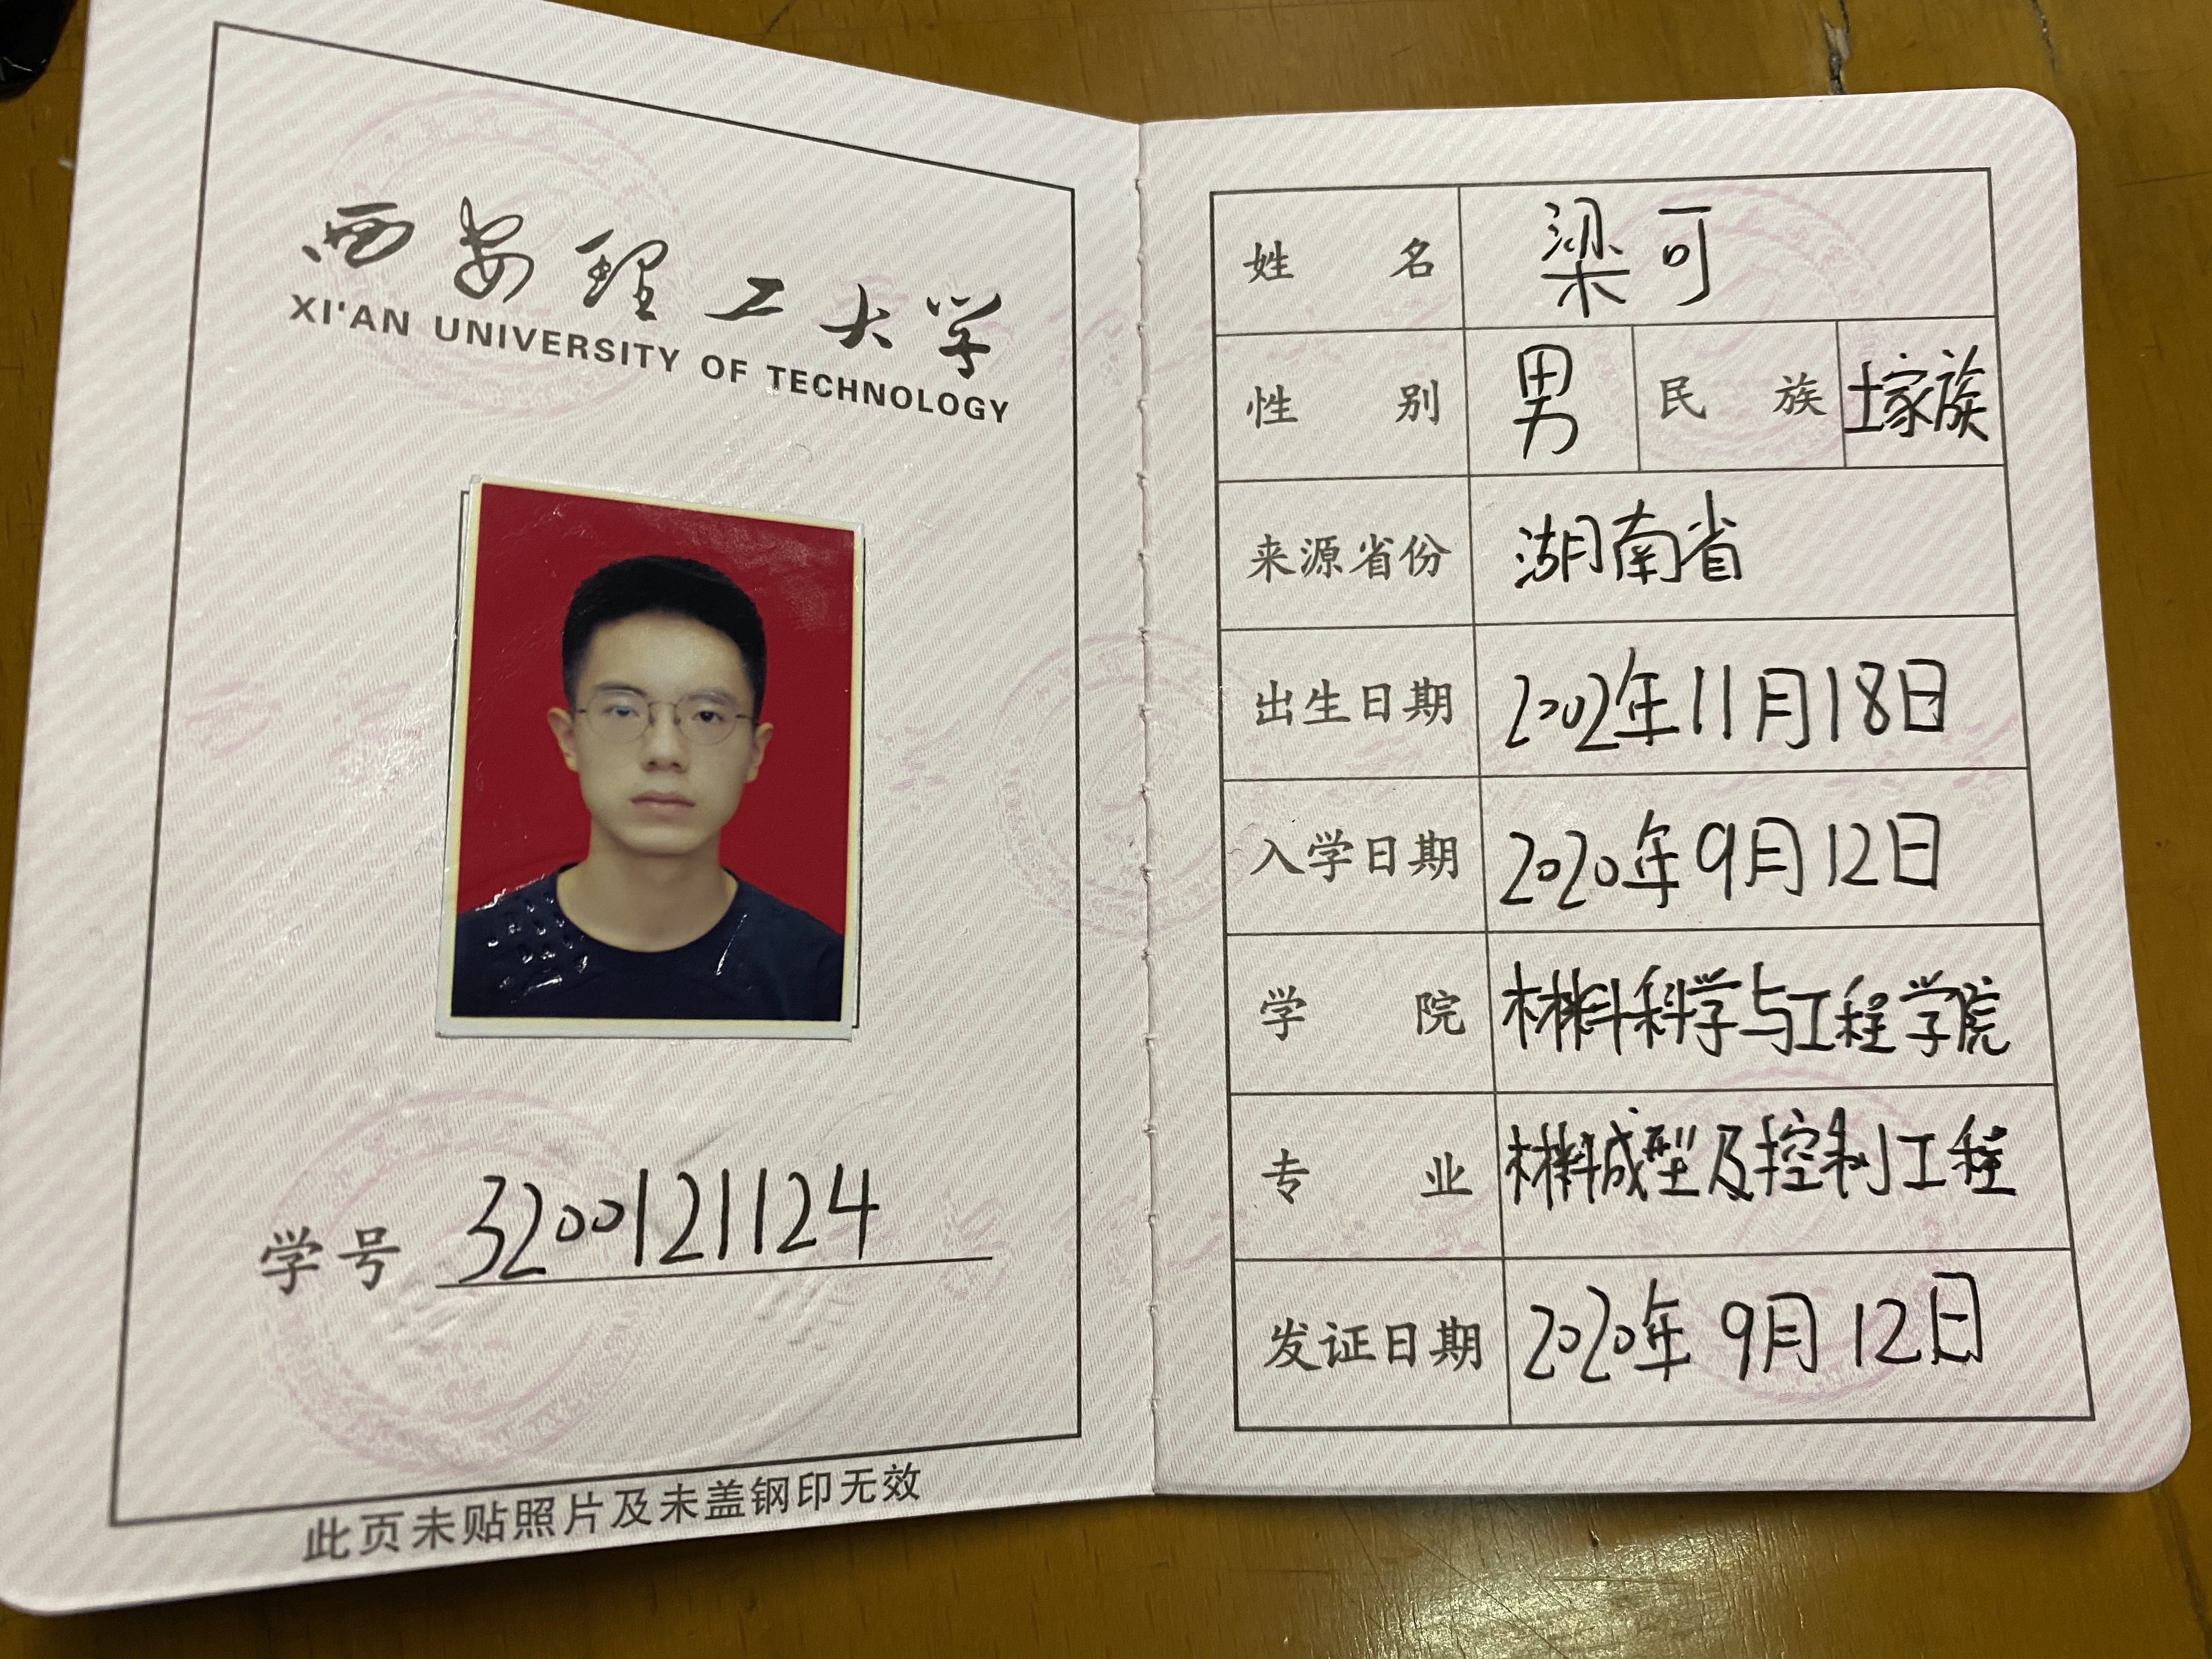 西安理工大学
XI'AN UNIVERSITY OF TECHNOLOGY
学号 3200121124
此页未贴照片及未盖钢印无效
姓名 梁可
性别 男 民族 土家族
来源省份 湖南省
出生日期 2002年11月18日
入学日期 2020年9月12日
学院 材料科学与工程学院
专业 材料成型及控制工程
发证日期 2020年9月12日